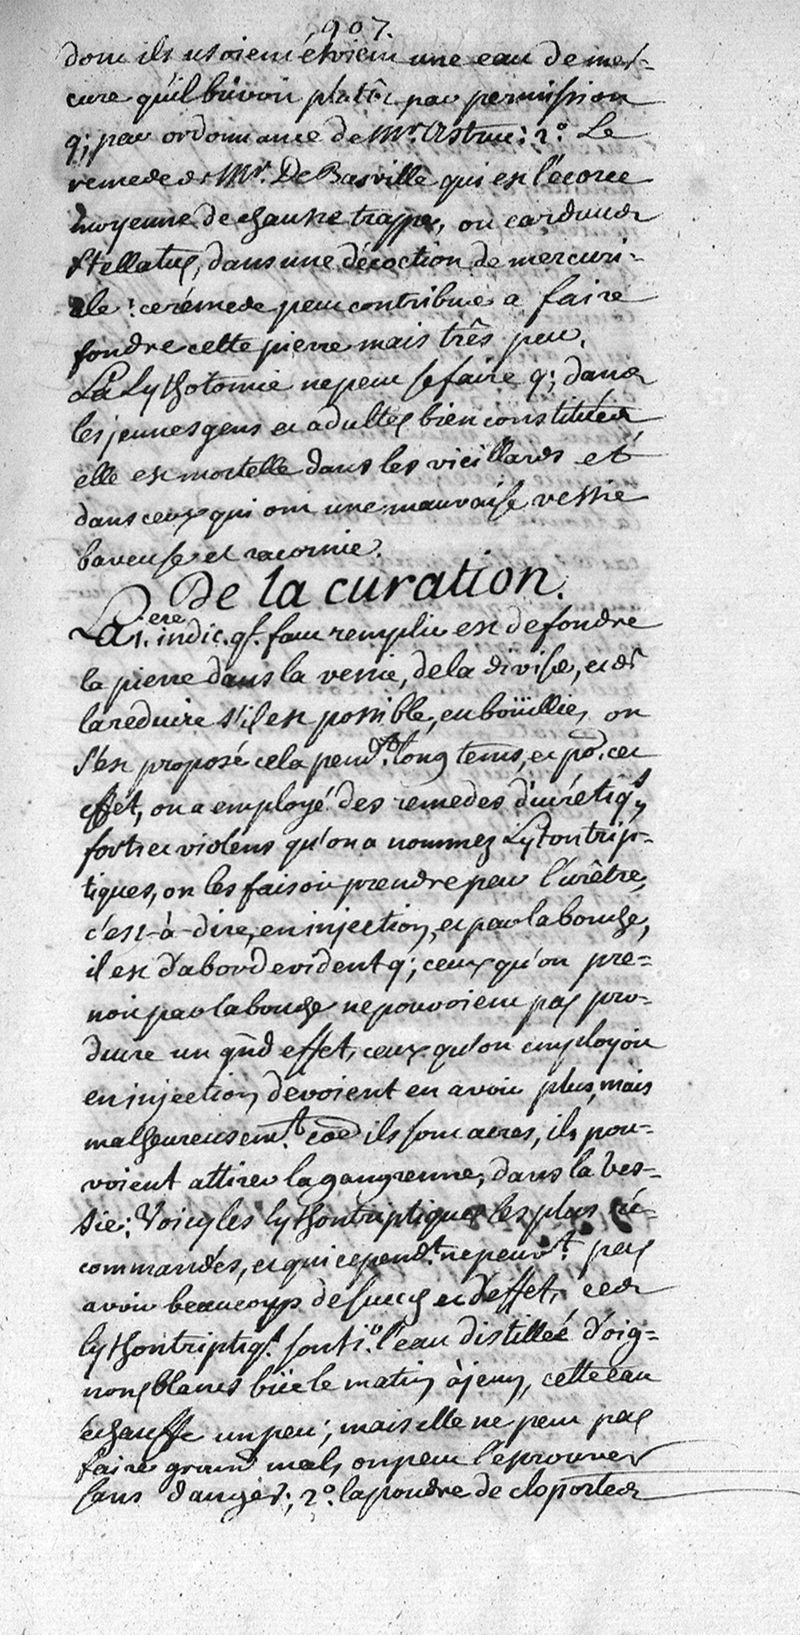 907.
dont ils usoient étoient une eau de mer-
cure qu'il buvoit plutôt par permission
q; par ordonnance de Mr. Astruc: 2.° Le
remede de Mr. De Basville qui est l'ecorce
moyenne de chausse trappe, ou carduus
stellatus, dans une décoction de mercuri-
ale: ce rémede peut contribuer a faire
fondre cette pierre mais três peu.
La Lythotomie ne peut se faire q; dans
les jeunes gens et adultes bien constitués
elle est mortelle dans les vieillards et
dans ceux qui ont une mauvaise vessie
baveuse et racornie.
De la curation.
La 1.ere indic. qf. faut remplir est de fondre
la pierre dans la vessie, de la divise, et de
la reduire s'il est possible, en boüillie, on
s'est proposé cela pend.t long tems, et po. cet
effet, on a employé des remedes diurétiqs
forts et violens qu'on a nommez Lytontrip-
tiques, on les faisoit prendre par l'urêtre,
c'est-à-dire, en injection, et par la bouche,
il est d'abord evident q; ceux qu'on pre=
noit par la bouche ne pouvoient pas pro-
duire un gnd effet, ceux qu'on employoit
en injection devoient en avoir plus, mais
malheureusem.t coe ils sont acres, ils pou-
voient attirer la gangrenne, dans la ves-
sie: Voicy les lythontriptiques les plus ré-
commandés, et qui cepend.t ne peuv.t pas
avoir beaucoup de succes et d'effet, ces
lythontriptiq.s sont 1.° l'eau distillée d'oig=
nons blancs büe le matin à jeun, cette eau
échauffe un peu; mais elle ne peut pas
faire grand mal, on peut l'eprouver
sans danger; 2.° la poudre de cloportes